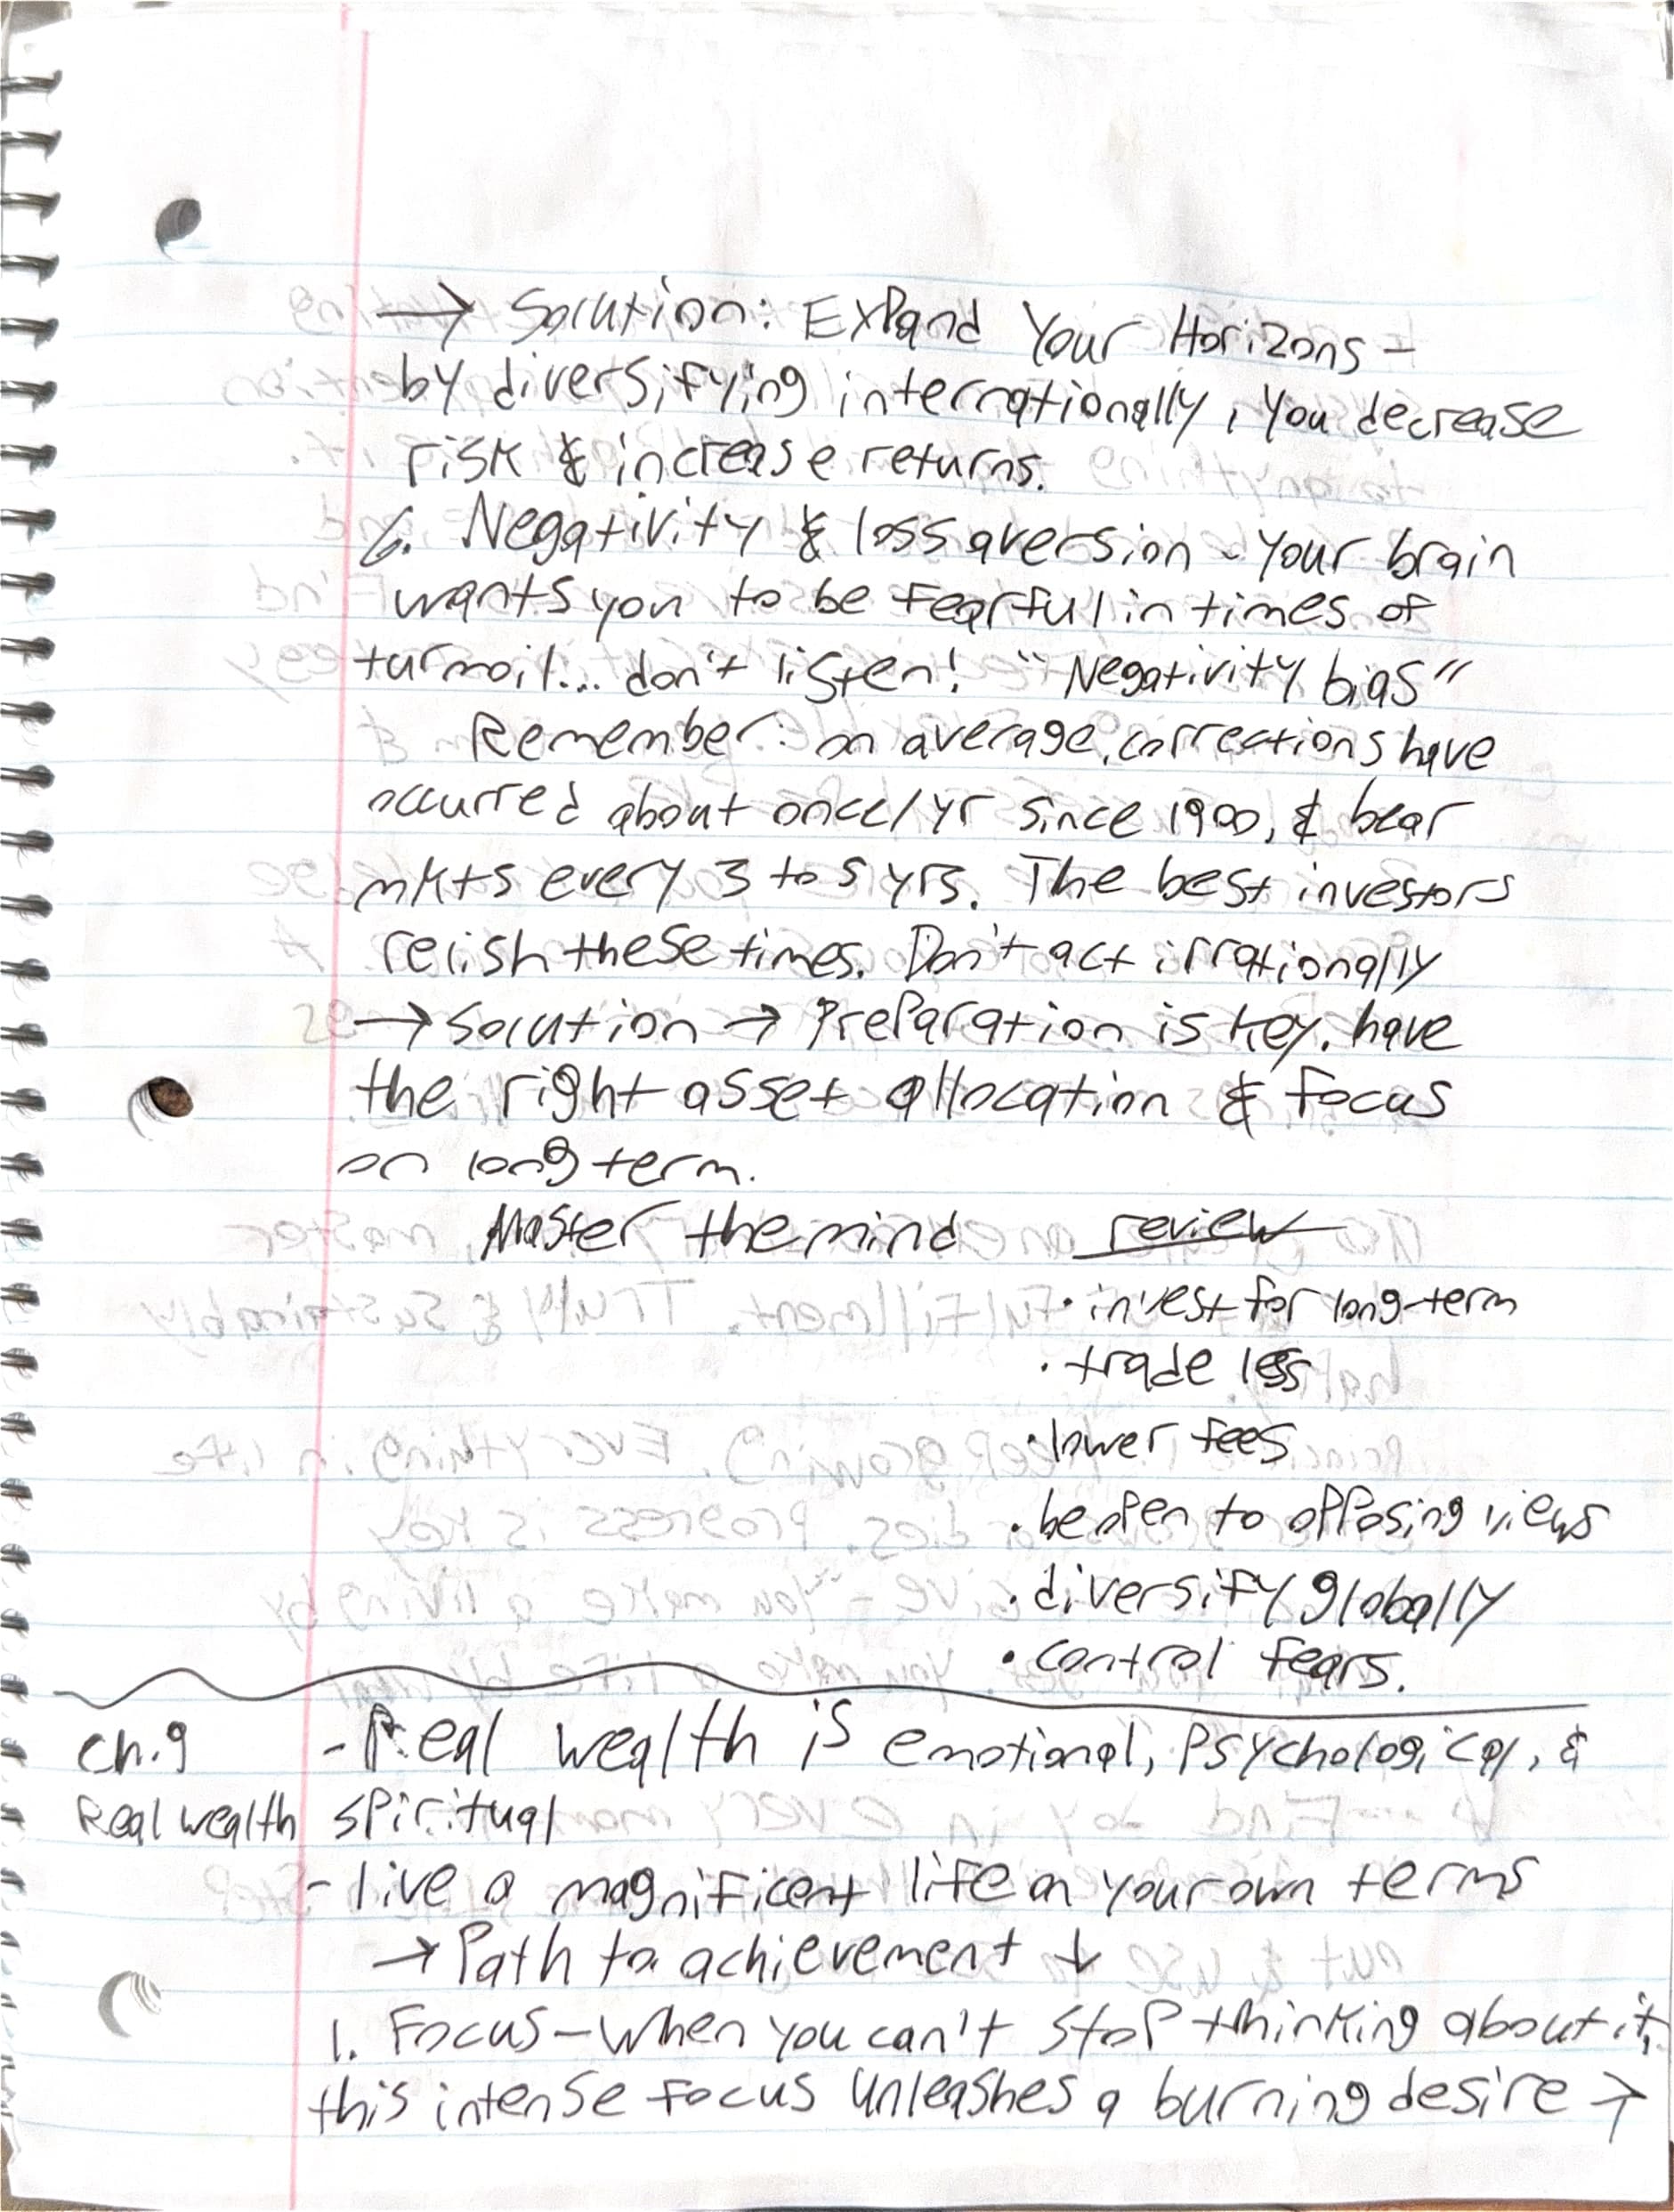 → Solution: Expand Your Horizons -
by diversifying internationally, you decrease
risk & increase returns.
6. Negativity & loss aversion - your brain
wants you to be fearful in times of
turmoil... don't listen! "Negativity bias"
Remember: on average, corrections have
occurred about once/yr since 1900, & bear
mkts every 3 to 5 yrs. The best investors
relish these times. Don't act irrationally
→ Solution → Preparation is key. have
the right asset allocation & focus
on long term.
Master the mind review
• invest for long-term
• trade less
• lower fees
• be open to opposing views
• diversify globally
• control fears.
Ch. 9 - Real wealth is emotional, psychological, &
Real wealth spiritual
- live a magnificent life on your own terms
→ Path to achievement ↓
1. Focus - When you can't stop thinking about it,
this intense focus unleashes a burning desire →